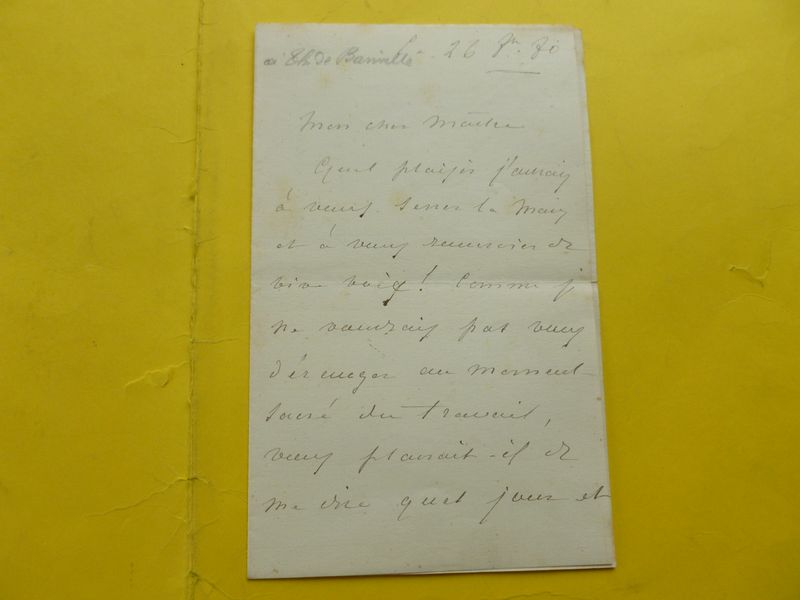 à Th. de Banville 26
Mon cher Maître
Quel plaisir j'aurais
à vous serrer la main
et à vous remercier de
vive voix! Comme je
ne voudrais pas vous
déranger au moment
sacré du travail,
vous plairait-il de
me dire quel jour et